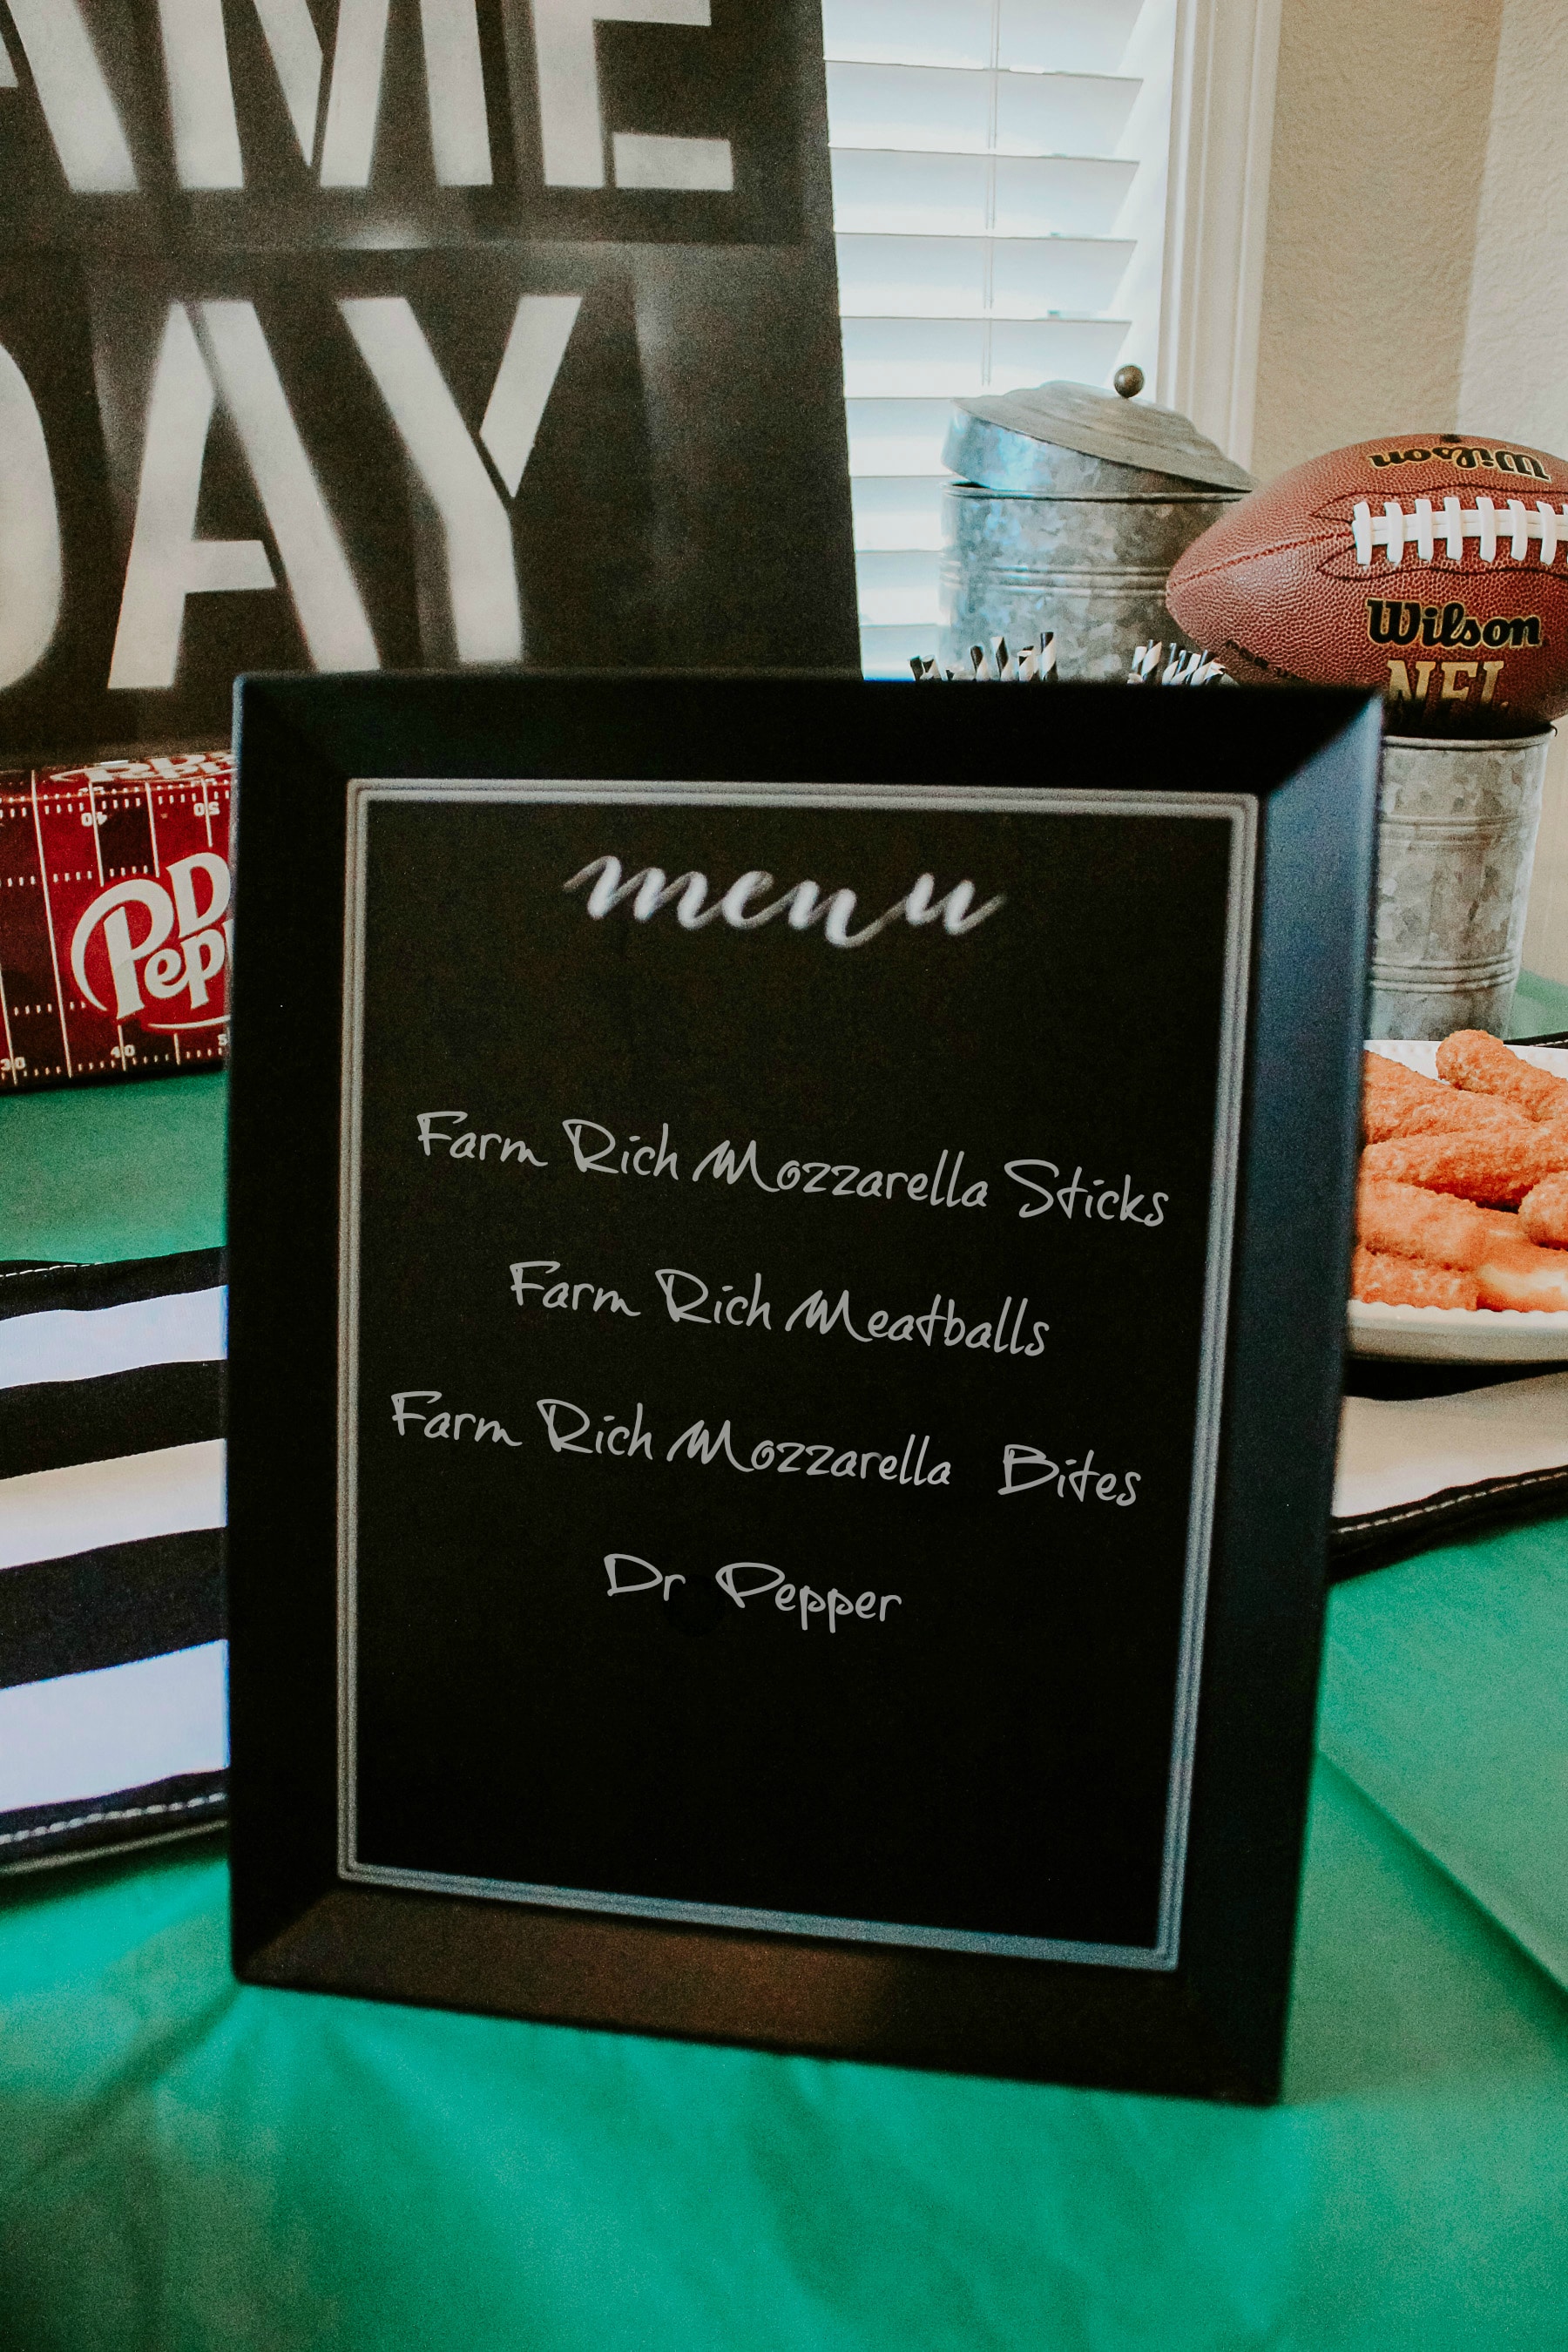 AME
DAY
Wilson
Wilson
NFL
50
Dr
Pep
30 40 5
menu
Farm Rich Mozzarella Sticks
Farm Rich Meatballs
Farm Rich Mozzarella Bites
Dr Pepper